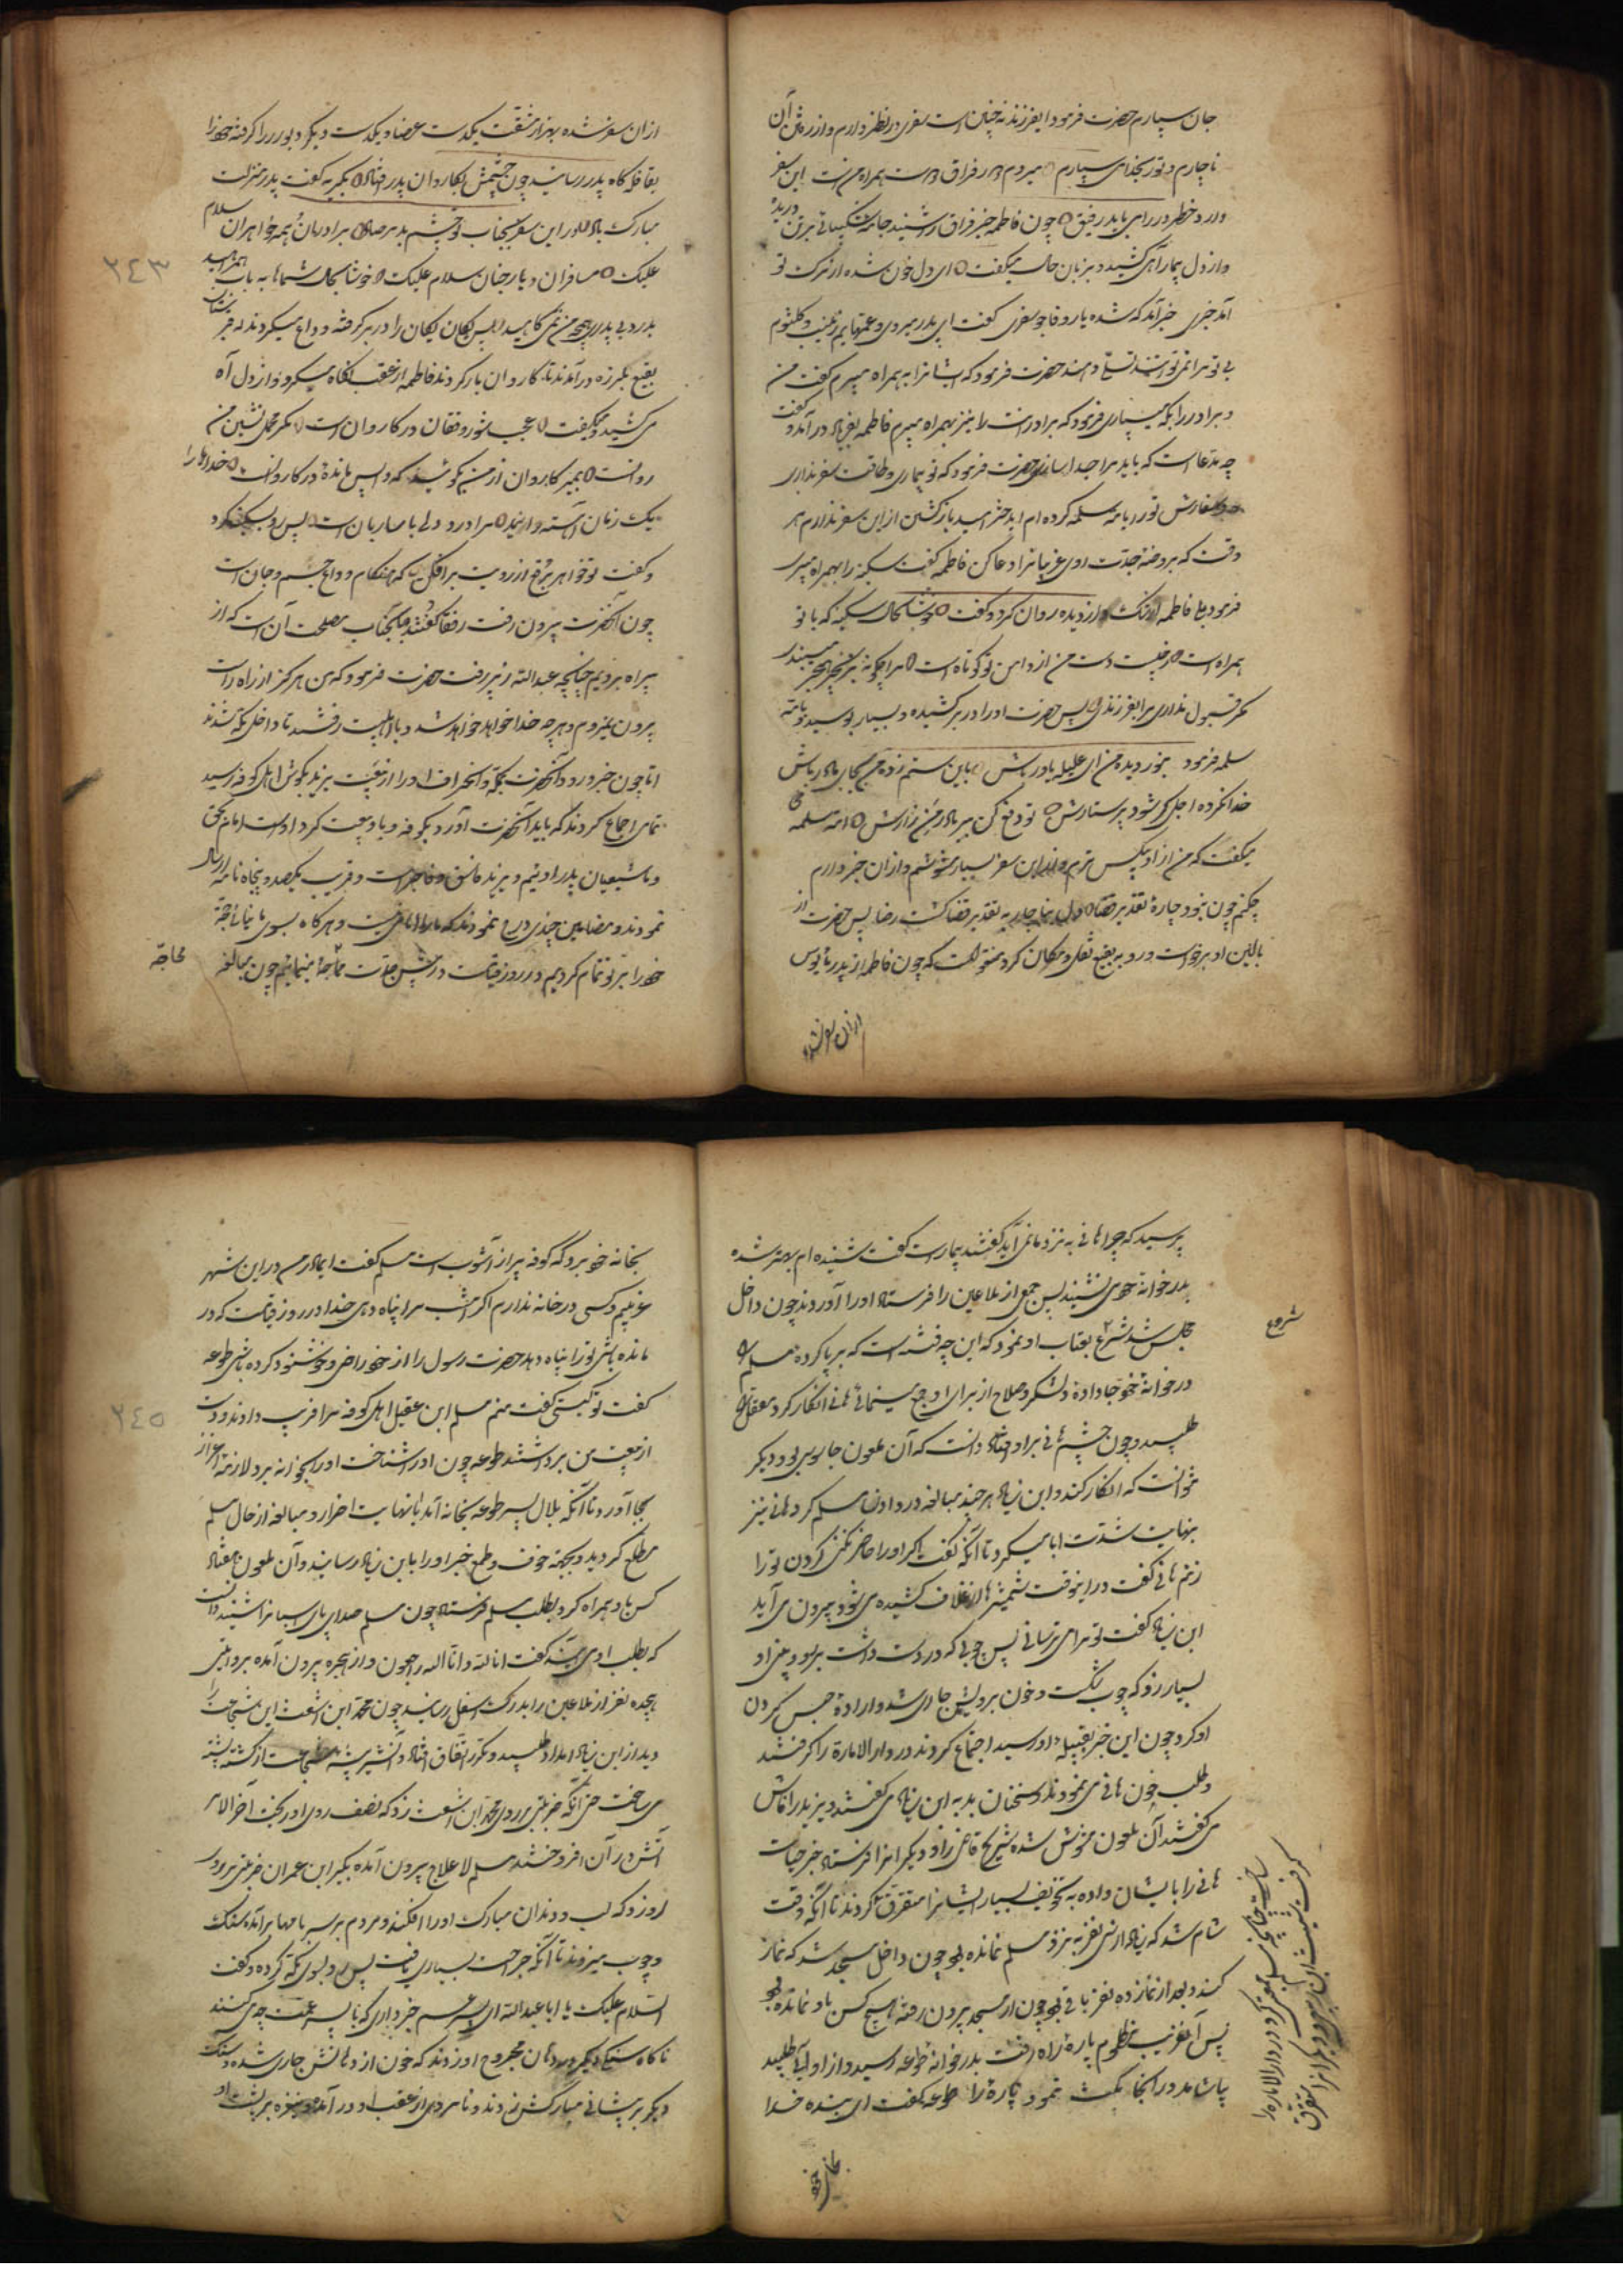 جان سپارم حضرت فرمود ایفرزند نه چنین است سفری در نظر دارم و از رفتن آن
ناچارم و تو را بخدا می سپارم میروم درد فراق دوست همراه منست این سفر
دارد خطر در راه می باید رفیق چون فاطمه خبر فراق را شنید جامه شکیبائی بر تن دریده
و از دل بیمار آهی کشید و بزبان حال میگفت ای دل خون شده از ترک تو
آمد خبری خبر آمد که شده یار وفاجو سفری گفت ای پدر میروی و عمتهایم زینب و کلثوم
بی تو مرا نمی توانند تسلی دهند حضرت فرمود که ایشانرا به همراه میبرم گفت من
و برادر را بکه میسپاری فرمود که برادرانت را نیز بهمراه میبرم فاطمه بفریاد درآمد و گفت
چه مدعا است که باید مرا جدا سازی حضرت فرمود که تو بیماری و طاقت سفر نداری
سفارش تو را بامه سلمه کرده ام ایدختر امید بازگشتن از این سفر ندارم هر
وقت که بروضه جدت روی غریبانرا دعا کن فاطمه گفت سکینه را بهمراه میبری
فرمود بلی فاطمه اشک از دیده روان کرد و گفت خوشا بحال سکینه که با تو
همراه است چیست دست من از دامن تو کوتاه است مرا چگونه بزنجیر هجر میبندی
مگر قبول نداری مرا بفرزندی پس حضرت او را در بر کشیده و بسیار بوسید و بامه
سلمه فرمود بنور دیده من ای علیله یاور باش باین ستم زده من بجای مادر باش
خدا نکرده اجل گر شود پرستارش تو دفع کن ببر مادر من زارش امه سلمه
میگفت که من از او بیکس ترم و از این سفر بسیار مشوشم و از آن خبر دارم
چکنم چون نبود چاره تقدیر قضا دل بناچار به تقدیر قضا گشت رضا پس حضرت از
بالین او برخواست و رو به بقیع نقل و مکان کرد منقولست که چون فاطمه از پدر مأیوس
از آن سفر شده
از آن سفر شده بهزار مشقت یکدست عصا و یکدست دیگر دیوار را گرفته خود را
بقافله گاه پدر رسانید چون چشمش بکاروان پدر افتاد بگریه گفت پدر منزلت
مبارک باد در این سفر بجناب تو چشم بد مرصاد برادران همه خواهران سلام
علیک مسافران دیار جنان سلام علیک خوشا بحال شماها به باب همراهید
پس یکان یکان را در بر گرفته وداع میکردند
بقیع بلرزه درآمد تا کاروان بار کردند فاطمه از عقب نگاه میکرد و از دل آه
می کشید و میگفت عجب شور و فغان در کاروان است مگر محمل نشین من
روانست بمیر کاروان از من بگوئید که واپس مانده در کاروانست خدا را
یک زمان آهسته رانید مرا درد دلی با ساربان است پس رو بسکینه کرد
و گفت تو خواهر برقع از رویت برافکن که هنگام وداع جسم و جان است
چون آنحضرت بیرون رفت رفقا گفتند بآنجناب مصلحت آن است که از
بیراه برویم چنانچه عبدالله زبیر رفت حضرت فرمود که من هرگز از راه راست
بیرون نمیروم و هرچه خدا خواهد خواهد شد و با اهلبیت رفتند تا داخل مکه شدند
اما چون خبر ورود آنحضرت بمکه و انحراف او را از بیعت یزید بگوش اهل کوفه رسید
تمامی اجماع کردند که باید آنحضرت آورد بکوفه و با او بیعت کرد او است امام بحق
و ما شیعیان پدر اوئیم و یزید فاسق و فاجر است و قریب یکصد و پنجاه نامه ارسال
نمودند و مضامین چندی درج نمودند که ما را امامی نیست و هرگاه بسوی ما نیائی حجة
خود را بر تو تمام کردیم و در روز قیامت در پیش جدت محاجه مینمائیم چون مبالغه
محاجه
٢٤٣
پرسید که چرا هانی به نزد ما نمی آید گفتند بیمار است گفت شنیده ام بهتر شده
بدر خوانه خود می نشیند پس جمعی از ملاعین را فرستاد او را آوردند چون داخل
مجلس شد شروع بعتاب او نمود که این چه فتنه است که برپا کرده مسلم را
در خوانه خود جا داده و لشکر و سلاح از برای او جمع مینمائی هانی انکار کرد معقل را
طلبید و چون چشم هانی بر او افتاد دانست که آن ملعون جاسوس بود دیگر
نتوانست که انکار کند و ابن زیاد هر چند مبالغه در دادن مسلم کرد هانی نیز
بنهایت شدت ابا میکرد تا آنکه گفت اگر او را حاضر نکنی گردن تو را
زنم هانی گفت در اینوقت شمشیرها از غلاف کشیده می شود و بیرون می آید
ابن زیاد گفت تو مرا می ترسانی پس چوبی که در دست داشت بر رو و بینی او
بسیار زد که چوب شکست و خون برویش جاری شد و اراده حبس کردن
او کرد چون این خبر بقبیله او رسید اجتماع کردند در دار الاماره را گرفتند
و طلب خون هانی می نمودند و سخنان بد به ابن زیاد می گفتند و یزید را فحاش
می گفتند آن ملعون مشوش شده شریح قاضی را و دیگر انرا فرستاد خبر حیات
هانی را بایشان داده به تخویف بسیار ایشانرا متفرق کردند تا آنکه وقت
شام شد که زیاده از سی نفر به نزد مسلم نمانده بود چون داخل مسجد شد که نماز
کند و بعد از نماز ده نفر باقی بود چون از مسجد بیرون رفته هیچ کس باو نمانده بود
پس آنغریب مظلوم پاره راه رفت بدر خوانه طوعه رسید و از او آبی طلبید
بیاشامد و در آنجا مکث نمود پاره را طوعه گفت ای بنده خدا
بخانه خود
شروع
بخانه خود برو که کوفه پر از آشوب است مسلم گفت ایمادر من در این شهر
غریبم و کسی و خانه ندارم اگر امشب مرا پناه دهی خدا در روز قیامت که در
مانده باشی تو را پناه دهد حضرت رسول را از خود راضی و خوشنود کرده باشی طوعه
گفت تو کیستی گفت منم مسلم ابن عقیل اهل کوفه مرا فریب دادند و دست
از بیعت من برداشتند طوعه چون او را شناخت او را بخوانه برد و لازمه اعزاز
بجا آورد تا آنکه بلال پسر طوعه بخانه آمد با نهایت اصرار و مبالغه از حال مسلم
مطلع گردید و بجهة خوف و طمع خبر او را بابن زیاد رسانید و آن ملعون هفتاد
کس باو همراه کرد بطلب مسلم فرستاد چون مسلم صدای پای اسبانرا شنید دانست
که بطلب او می آیند گفت انا لله و انا الیه راجعون و از حجره بیرون آمده بروایتی
هیجده نفر از ملاعین را بدرک اسفل رسانید چون محمد ابن اشعث این شجاعت را
دید از ابن زیاد امداد طلبید و مکرر اتفاق افتاد و آنشیر بیشه شجاعت از کشته پشته
می ساخت حتی آنکه ضربتی بر روی محمد ابن اشعث زد که نصف روی او ریخت آخر الامر
آتش در آن افروختند مسلم لاعلاج بیرون آمده بکیر ابن عمران ضربتی بر روی
او زد و که لب و دندان مبارک او را افکند و مردم بر سر بامها برآمده سنگ
و چوب میزدند تا آنکه جراحت بسیاری یافت پس رو بسوی مکه کرده و گفت
السلام علیک یا ابا عبدالله ای پسر عم خبر داری که با پسر عمت چه می کنند
ناگاه سنگ دیگر در دهان مجروح او زدند که خون از دهانش جاری شده و سنگ
دیگر بر پیشانی مبارکش زدند و نامردی از عقب او درآمده و نیزه بر پشت او
٢٤٥